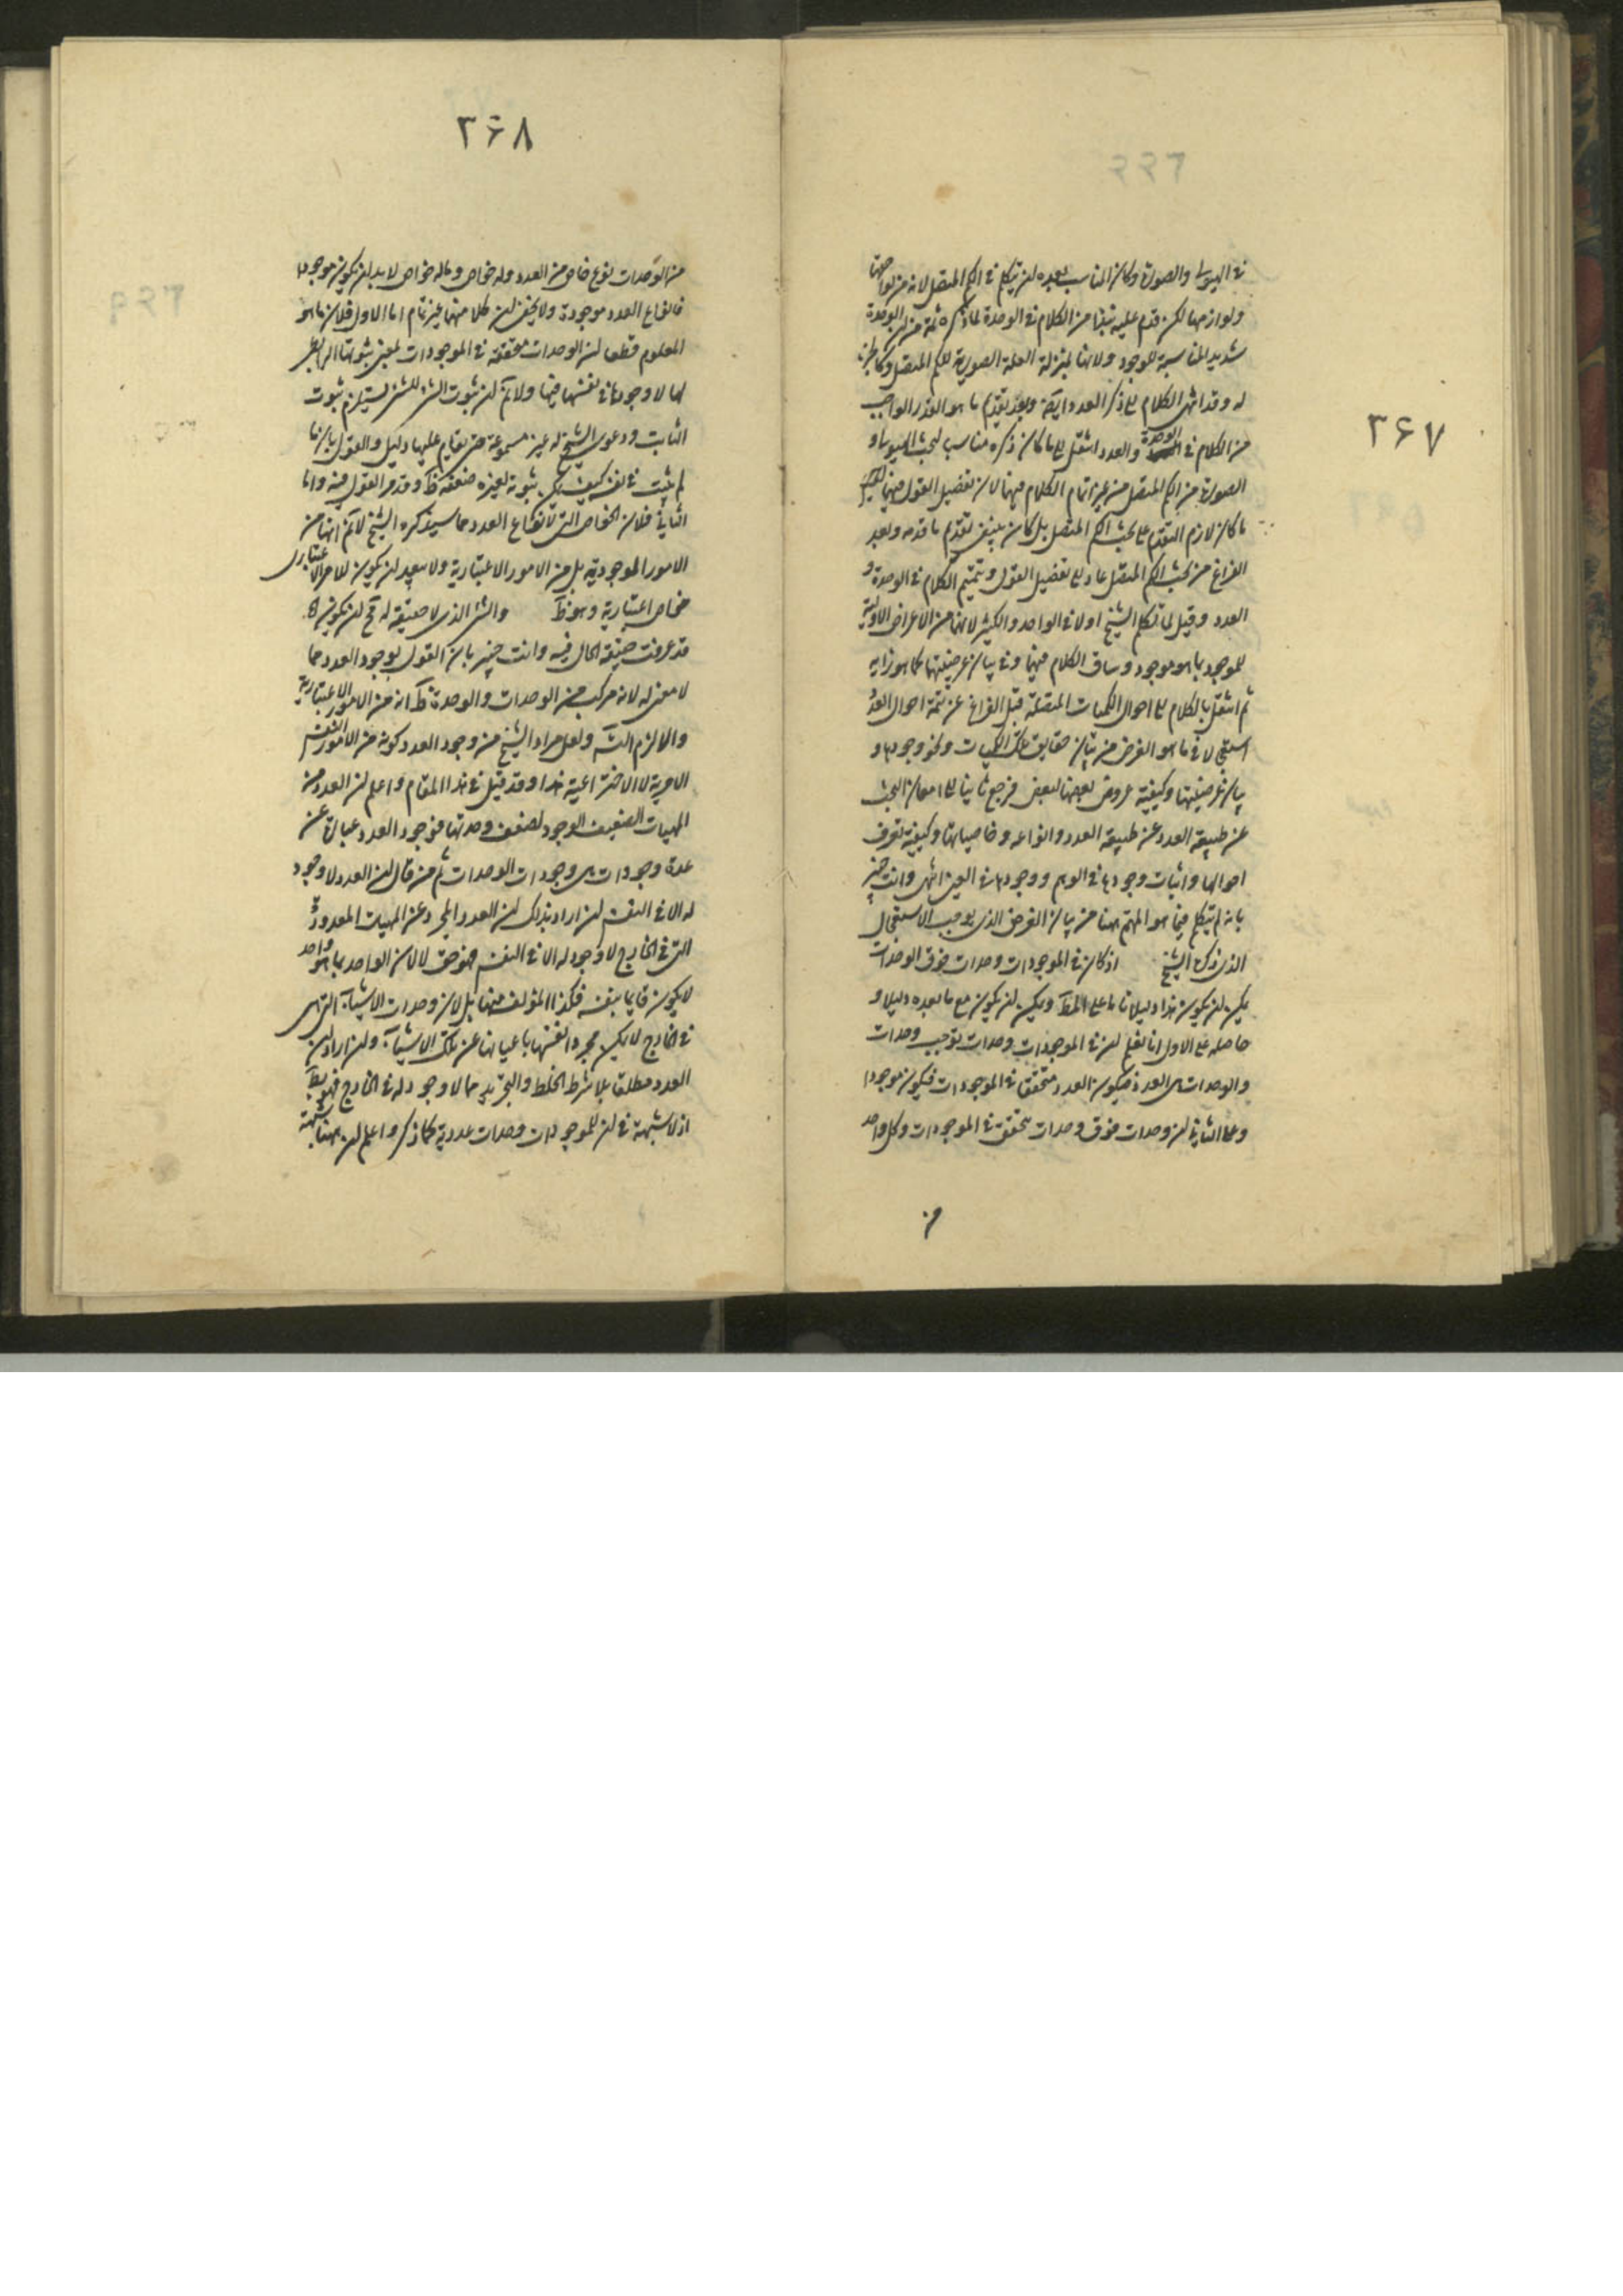 ۳۶۷
في الهيولى والصورة وكان المناسب بعده لن يتكلم في الكم المتصل لانه من لواحقها
ولوازمها لكن قدم عليه نبذا من الكلام في الوحدة لما ذكره ثمة من لن الوحدة
شديد المناسبة للموجود ولانها بمنزلة العلة الصورية للكم المتصل وكالمبدأ
له وقد انتهى الكلام الى ذكر العدد ايضا وبعد تقديم ما هو القدر الواجب
من الكلام في الوحدة والعدد اشتغل الى ما كان ذكره مناسب لبحث الهيولى و
الصورة من الكم المتصل من غير اتمام الكلام فيهما لان تفصيل القول فيهما
ما كان لازم التقدم على بحث الكم المتصل بل كان ينبغي تقديم ما قدمه وبعد
الفراغ من بحث الكم المتصل عاد الى تفصيل القول وتتميم الكلام في الوحدة و
العدد وقيل لما تكلم الشيخ اولا في الواحد والكثير لانهما من الاعراض الاولية
للموجود بما هو موجود وساق الكلام فيهما وفي بيان عرضيتهما كما هو دابه
ثم اشتغل بالكلام الى احوال الكميات المتصلة قبل الفراغ عن تتمة احوال العدد
استعجالا في ما هو الغرض من بيان حقايق تلك الكميات ونحو وجودها و
بيان عرضيتها وكيفية عروض بعضها لبعض فرجع ثانيا الى امعان البحث
عن طبيعة العدد عن طبيعة العدد وانواعه وخاصياتها وكيفية تعرف
احوالها واثبات وجودها في الوهم ووجودها في العين انتهى وانت خبير
بانه لم يتكلم فيما هو المهتم بهنا من بيان الغرض الذي يوجب الاستعجال
الذي ذكره الشيخ اذ كان في الموجودات وحدات فوق الوحدات
يمكن لن يكون هذا دليلا تاما على المط ويمكن لن يكون مع ما بعده دليلا و
حاصله على الاول انا نعلم لن في الموجودات وحدات توجب وحدات
والوحدات هي العدد فيكون العدد متحققا في الموجودات فيكون موجودا
وعلى الثاني لن وحدات فوق وحدات يتحقق في الموجودات وكل واحد
من
۳۶۸
من الوحدات نوع خاص من العدد وله خواص وماله خواص لابد لن يكون موجودا
فانواع العدد موجودة ولا يخفى لن كلا منهما غير تام اما الاول فلان ما هو
المعلوم قطعا لن الوحدات متحققة في الموجودات بمعنى ثبوتها الرابطي
لها لا وجودها في نفسها فيها ولا نم لن ثبوت الشئ للشئ يستلزم ثبوت
الثابت ودعوى الشيخ له غير مسموعة حتى يقام عليها دليل والقول بان ما
لم يثبت في نفسه كيف يمكن ثبوته لغيره ضعفه ظ وقد مر القول فيه واما
الثاني فلان الخواص التي لانواع العدد مما سيذكره الشيخ لا نم انها من
الامور الموجودية بل من الامور الاعتبارية ولا بعيد لن يكون للامر الاعتباري
خواص اعتبارية وهو ظ والشئ الذي لا حقيقة له مح لن يكون
قد عرفت حقيقة الحال فيه وانت خبير بان القول بوجود العدد مما
لا معنى له لانه مركب من الوحدات والوحدة ظ انه من الامور الاعتبارية
والا لزم التسه ولعل مراد الشيخ من وجود العدد كونه من الامور النفس
الامرية لا الاختراعية هذا وقد قيل في هذا المقام واعلم لن العدد من
المهيات الضعيفة الوجود لضعف وحدتها فوجود العدد عبارة عن
عدة وجودات هي وجودات الوحدات ثم من قال لن العدد لا وجود
له الا في النفس لن اراد بذلك لن العدد المجرد عن المهيات المعدودة
التي في الخارج لا وجود له الا في النفس فهو حق لا لان الواحد بما هو واحد
لا يكون قايما بنفسه فكذا المؤلف منها بل لان وحدات الاشياء التي هي
في الخارج لا يمكن مجردا نفسها باعيانها عن تلك الاشياء ولن اراد لن
العدد مطلقا بلا شرط الخلط والتجريد مما لا وجود له في الخارج فهو بط
اذ لا شبهة في لن للموجودات وحدات عددية كما ذكر واعلم لن بهنا شبهة